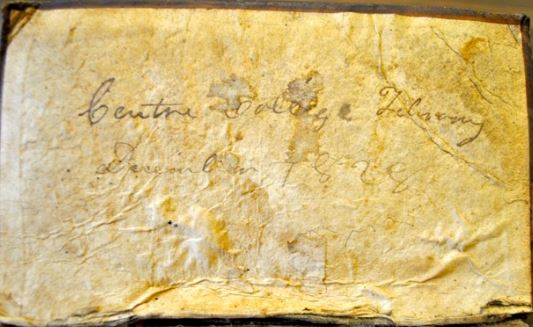 Centre College Library
December 1828